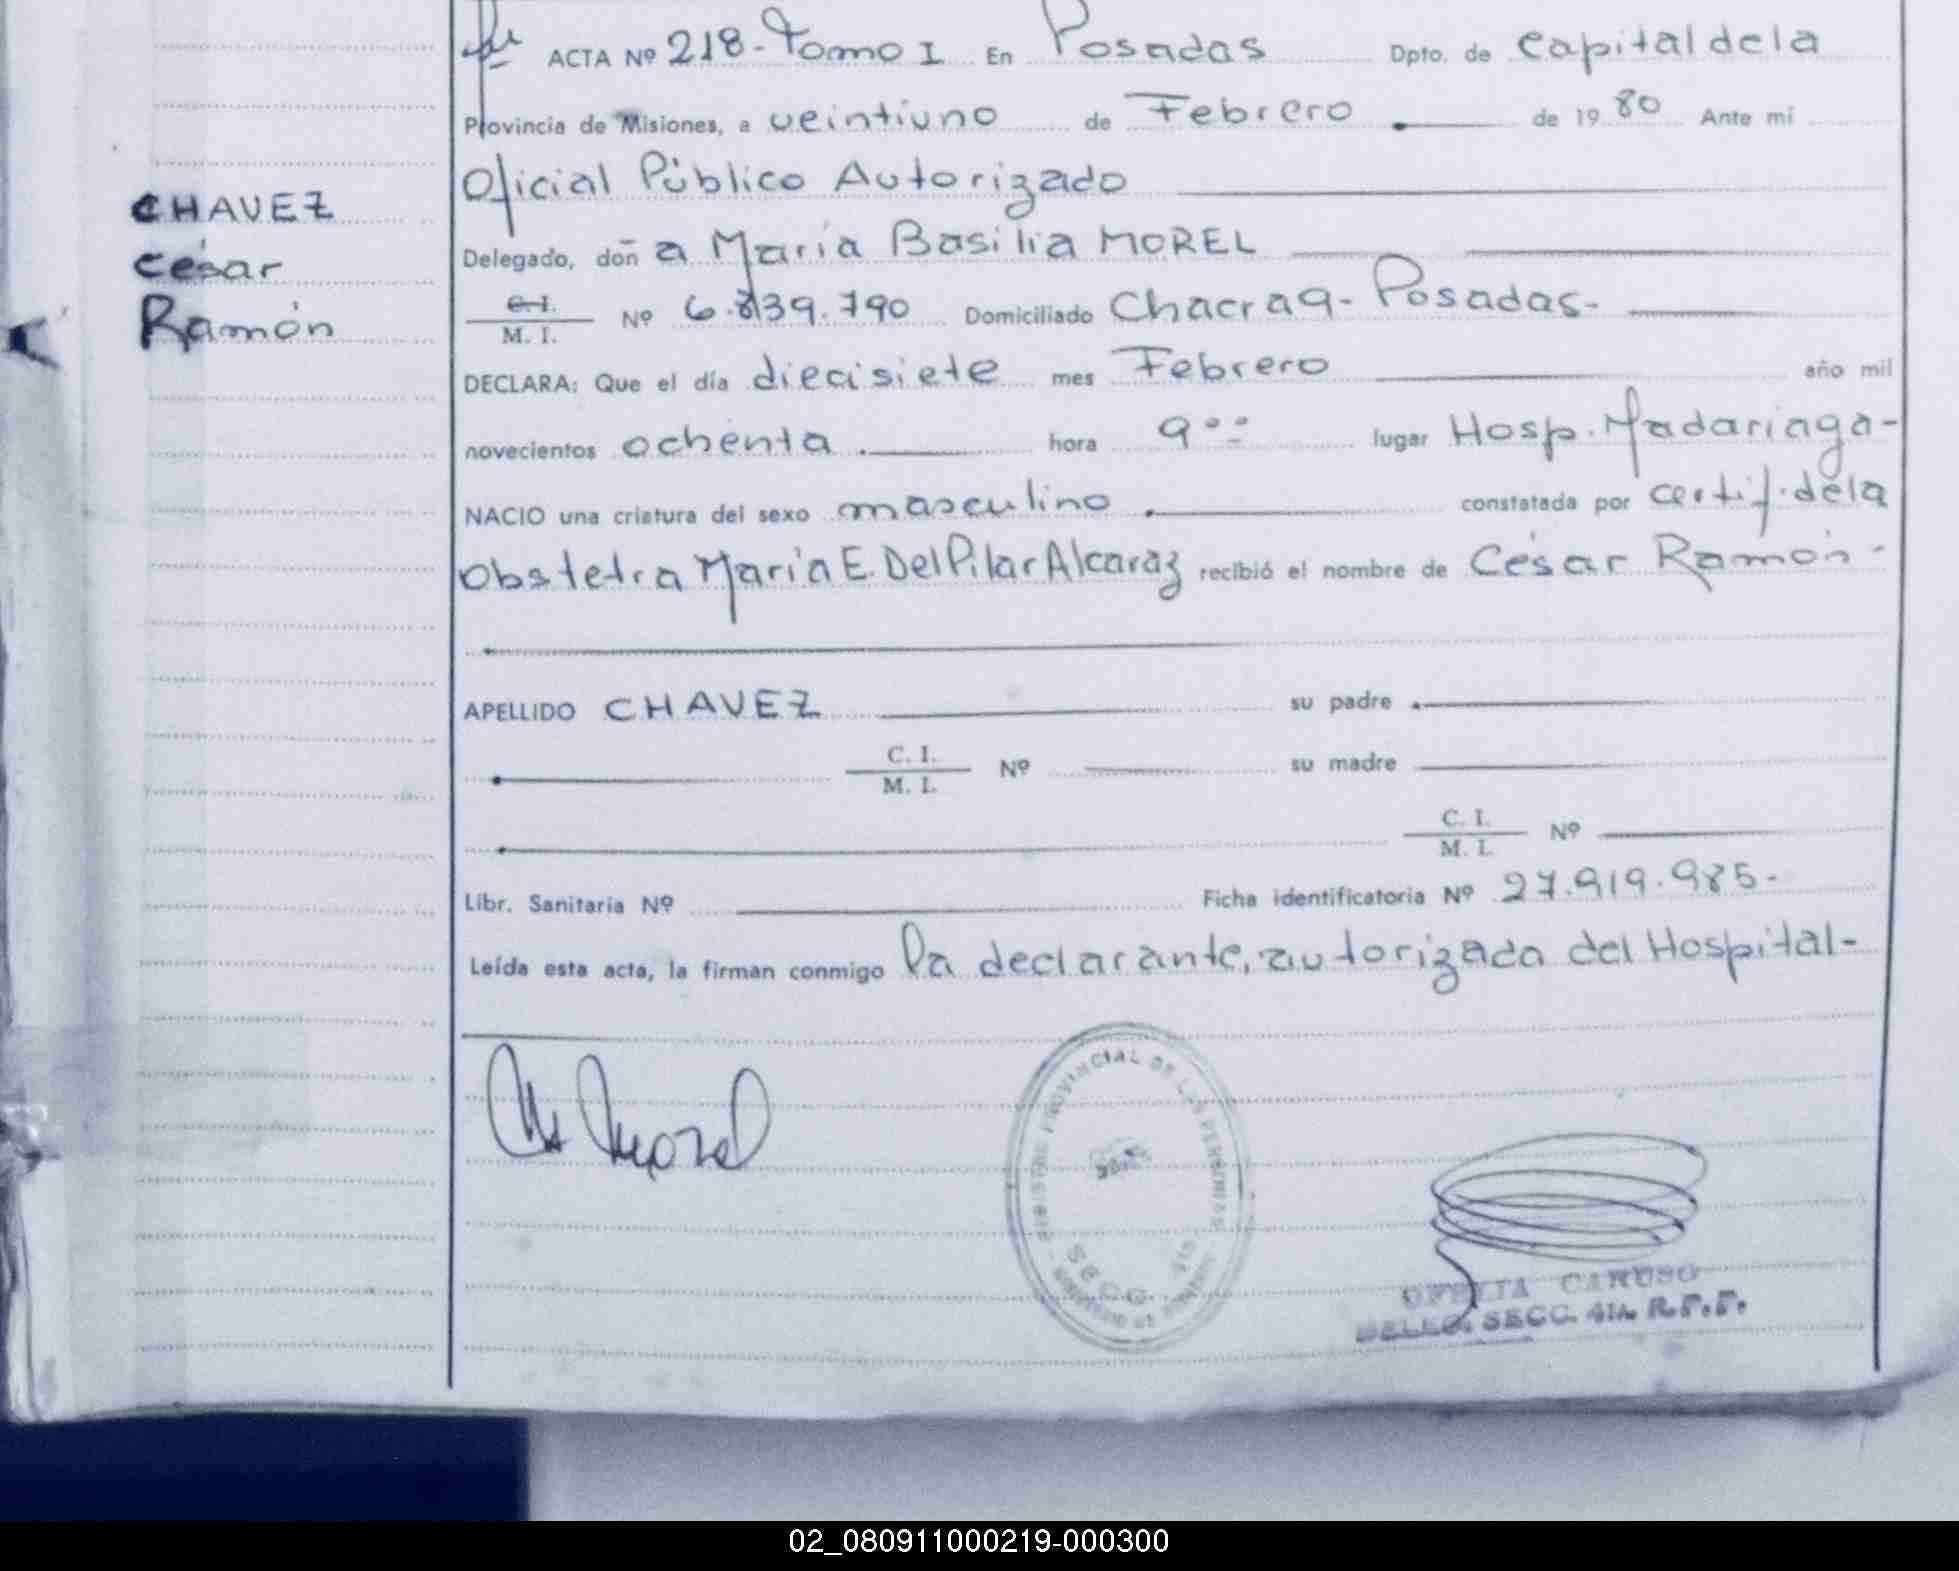 ACTA Nº 218-Tomo I En Posadas Dpto. de Capital de la
Provincia de Misiones, a veintiuno de Febrero de 1980 Ante mi
Oficial Público Autorizado
CHAVEZ
César
Ramón
Delegado, doña María Basilia MOREL
C.I. / M. I. Nº 6.839.790 Domiciliado Chacra 9- Posadas-
DECLARA: Que el día diecisiete mes Febrero año mil
novecientos ochenta hora 9°° lugar Hosp. Madariaga-
NACIO una criatura del sexo masculino constatada por certif. de la
Obstetra María E. Del Pilar Alcaraz recibió el nombre de César Ramón-
APELLIDO CHAVEZ su padre
C. I. / M. I. Nº su madre
C. I. / M. I. Nº
Libr. Sanitaria Nº Ficha identificatoria Nº 27.919.985-
Leída esta acta, la firman conmigo la declarante, autorizada del Hospital-
Morel
REGISTRO PROVINCIAL DE LAS PERSONAS
SECC.
OFELIA CARUSO
DELEG. SECC. 4ta. R.P.P.
02_080911000219-000300